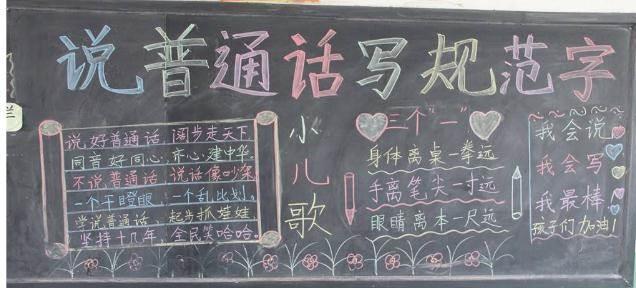 说普通话写规范字
说好普通话，阔步走天下。
同音好同心，齐心建中华。
不说普通话，说话像吵架
一个干瞪眼，一个乱比划。
学说普通话，起步抓娃娃
坚持十几年，全民笑哈哈。
小儿歌
三个"一"
身体离桌一拳远
手离笔尖一寸远
眼睛离本一尺远
我会说
我会写
我最棒
孩子们加油！